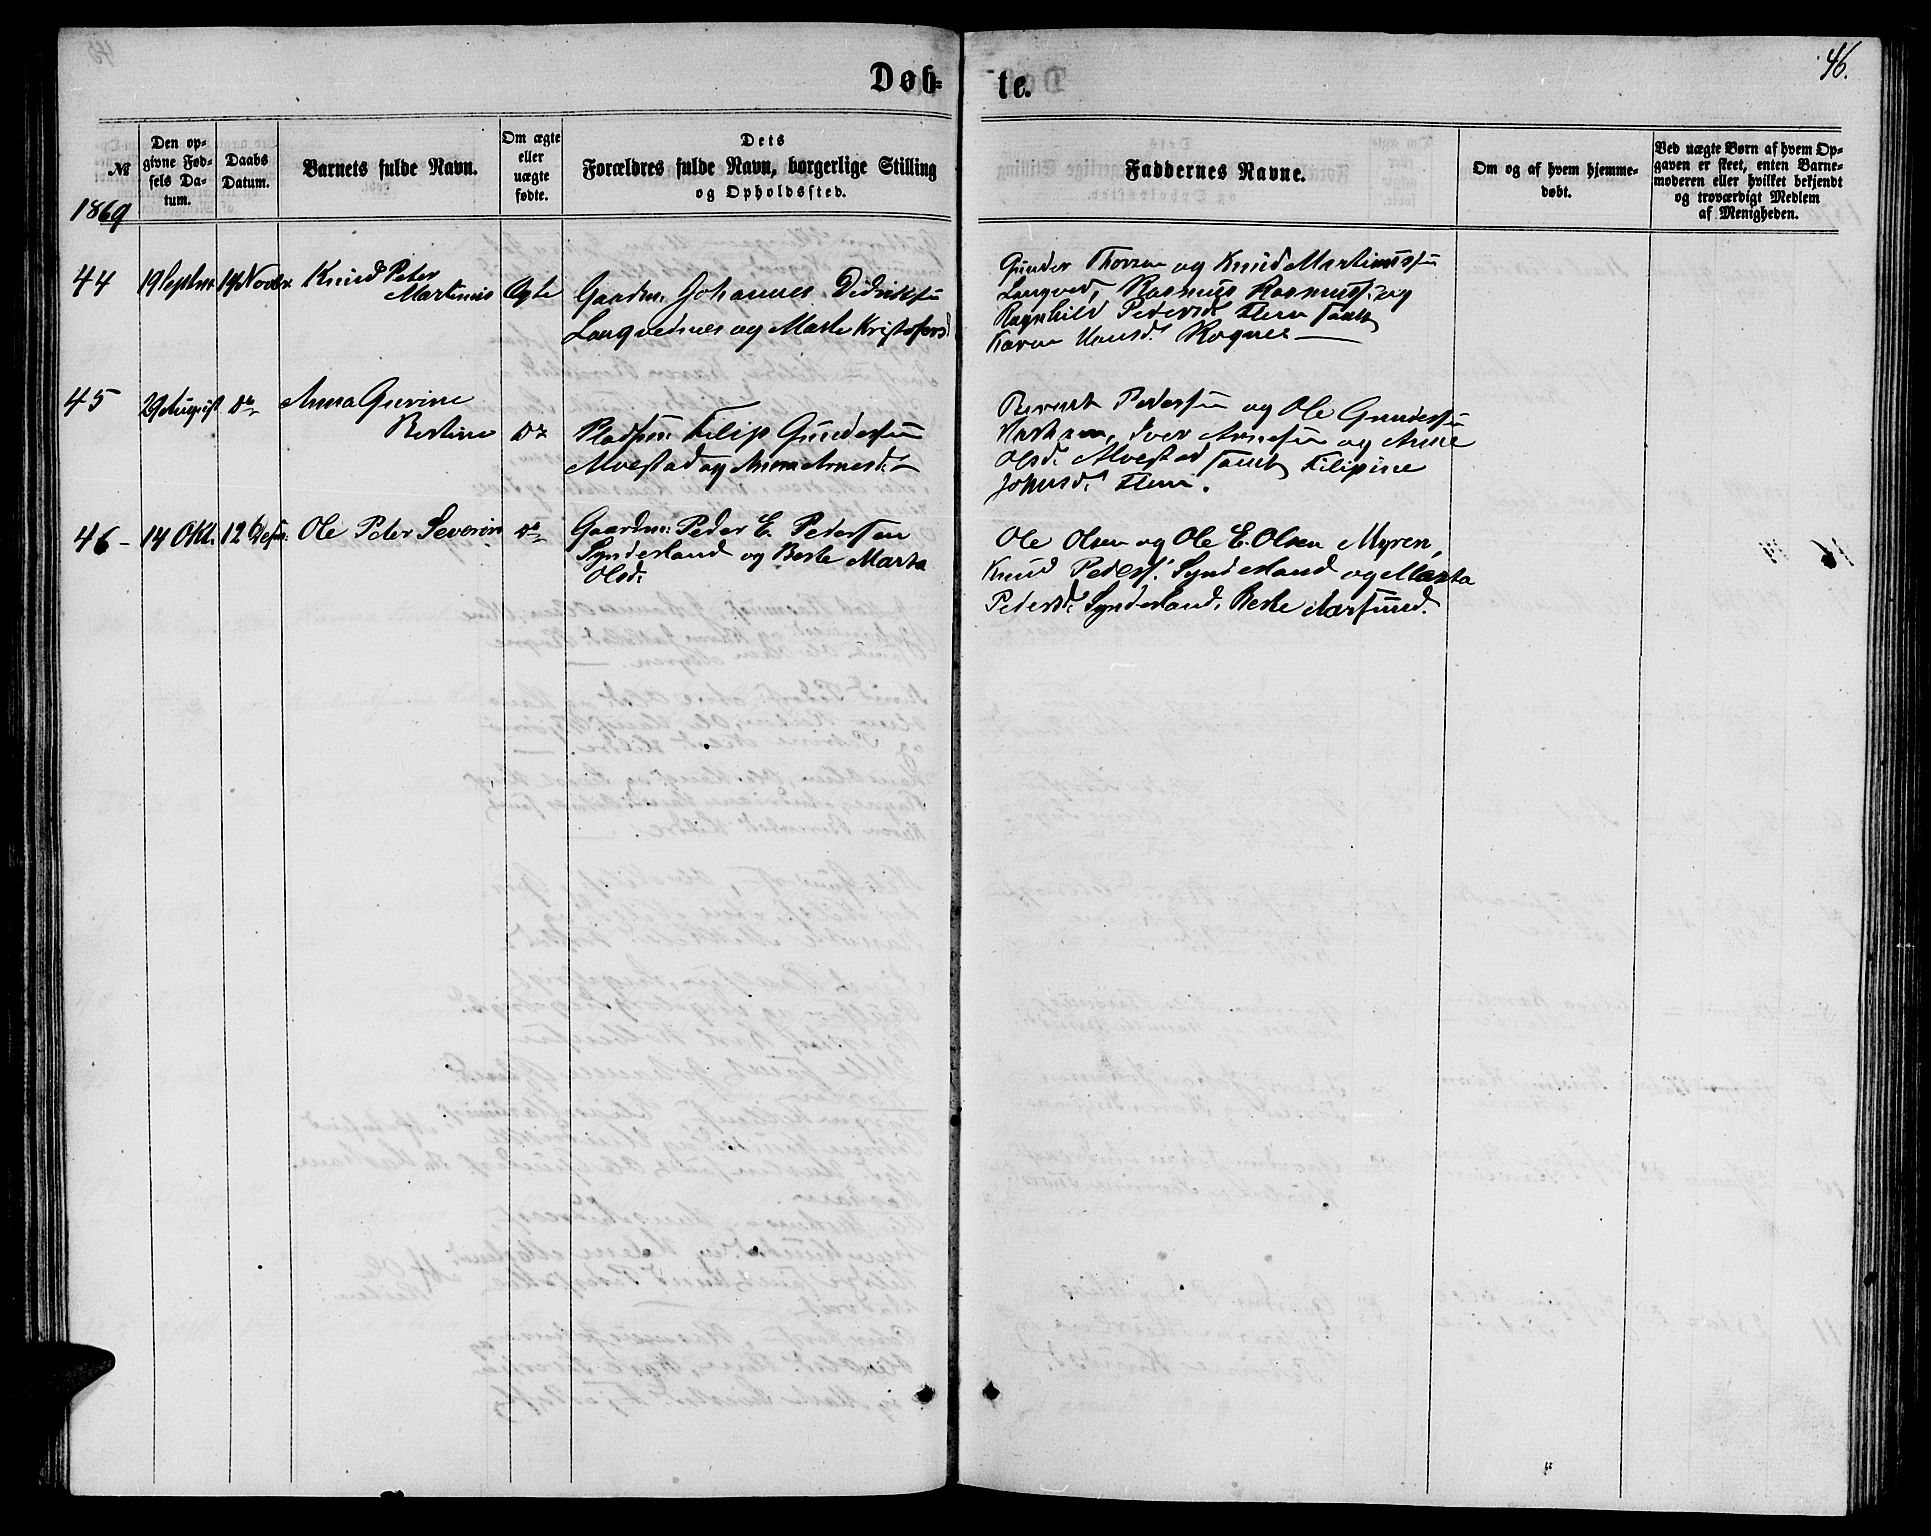 Døb-
te.
46.
№
Den op-
givne Fød-
sels Da-
tum.
Daabs
Datum.
Barnets fulde Navn.
Om ægte
eller
uægte
fødte.
Dets
Forældres fulde Navn, borgerlige Stilling
og Opholdssted.
Faddernes Navne.
Om og af hvem hjemme-
døbt.
Ved uægte Børn af hvem Op-
gaven er skeet, enten Barne-
moderen eller hvilket bekjendt
og troværdigt Medlem
af Menigheden.
1869
44
19 Septbr
19 Novbr.
Knud Peter
Martinus
Ægte
Gaardm: Johannes Didriksen
Longvanes og Marte Kristofersd
Gunder Thorsen og Knud Martinussen
Longved, Rasmus Rasmuss: og
Ragnhild Pedersd. Flem samt
Karen Hansd. Rognes
45
29 August
Do
Anna Gurine
Bertine
Do
Pladsm: Filip Gundersen
Alvestad og Anna Arnesd.
Berent Pedersen og Ole Gundersen
Harham, Iver Arnesen og Anne
Olsd. Alvestad samt Filipine
Johnsd. Flem.
46
14 Okt.
12 Desbr:
Ole Peter Severin
Do
Gaardm: Peder E. Pedersen
Synderland og Berte Marta
Olsd.
Ole Olsen og Ole E. Olsen Myren,
Knud Peders: Synderland og Marta
Pedersd. Synderland, Berte Aarsund.